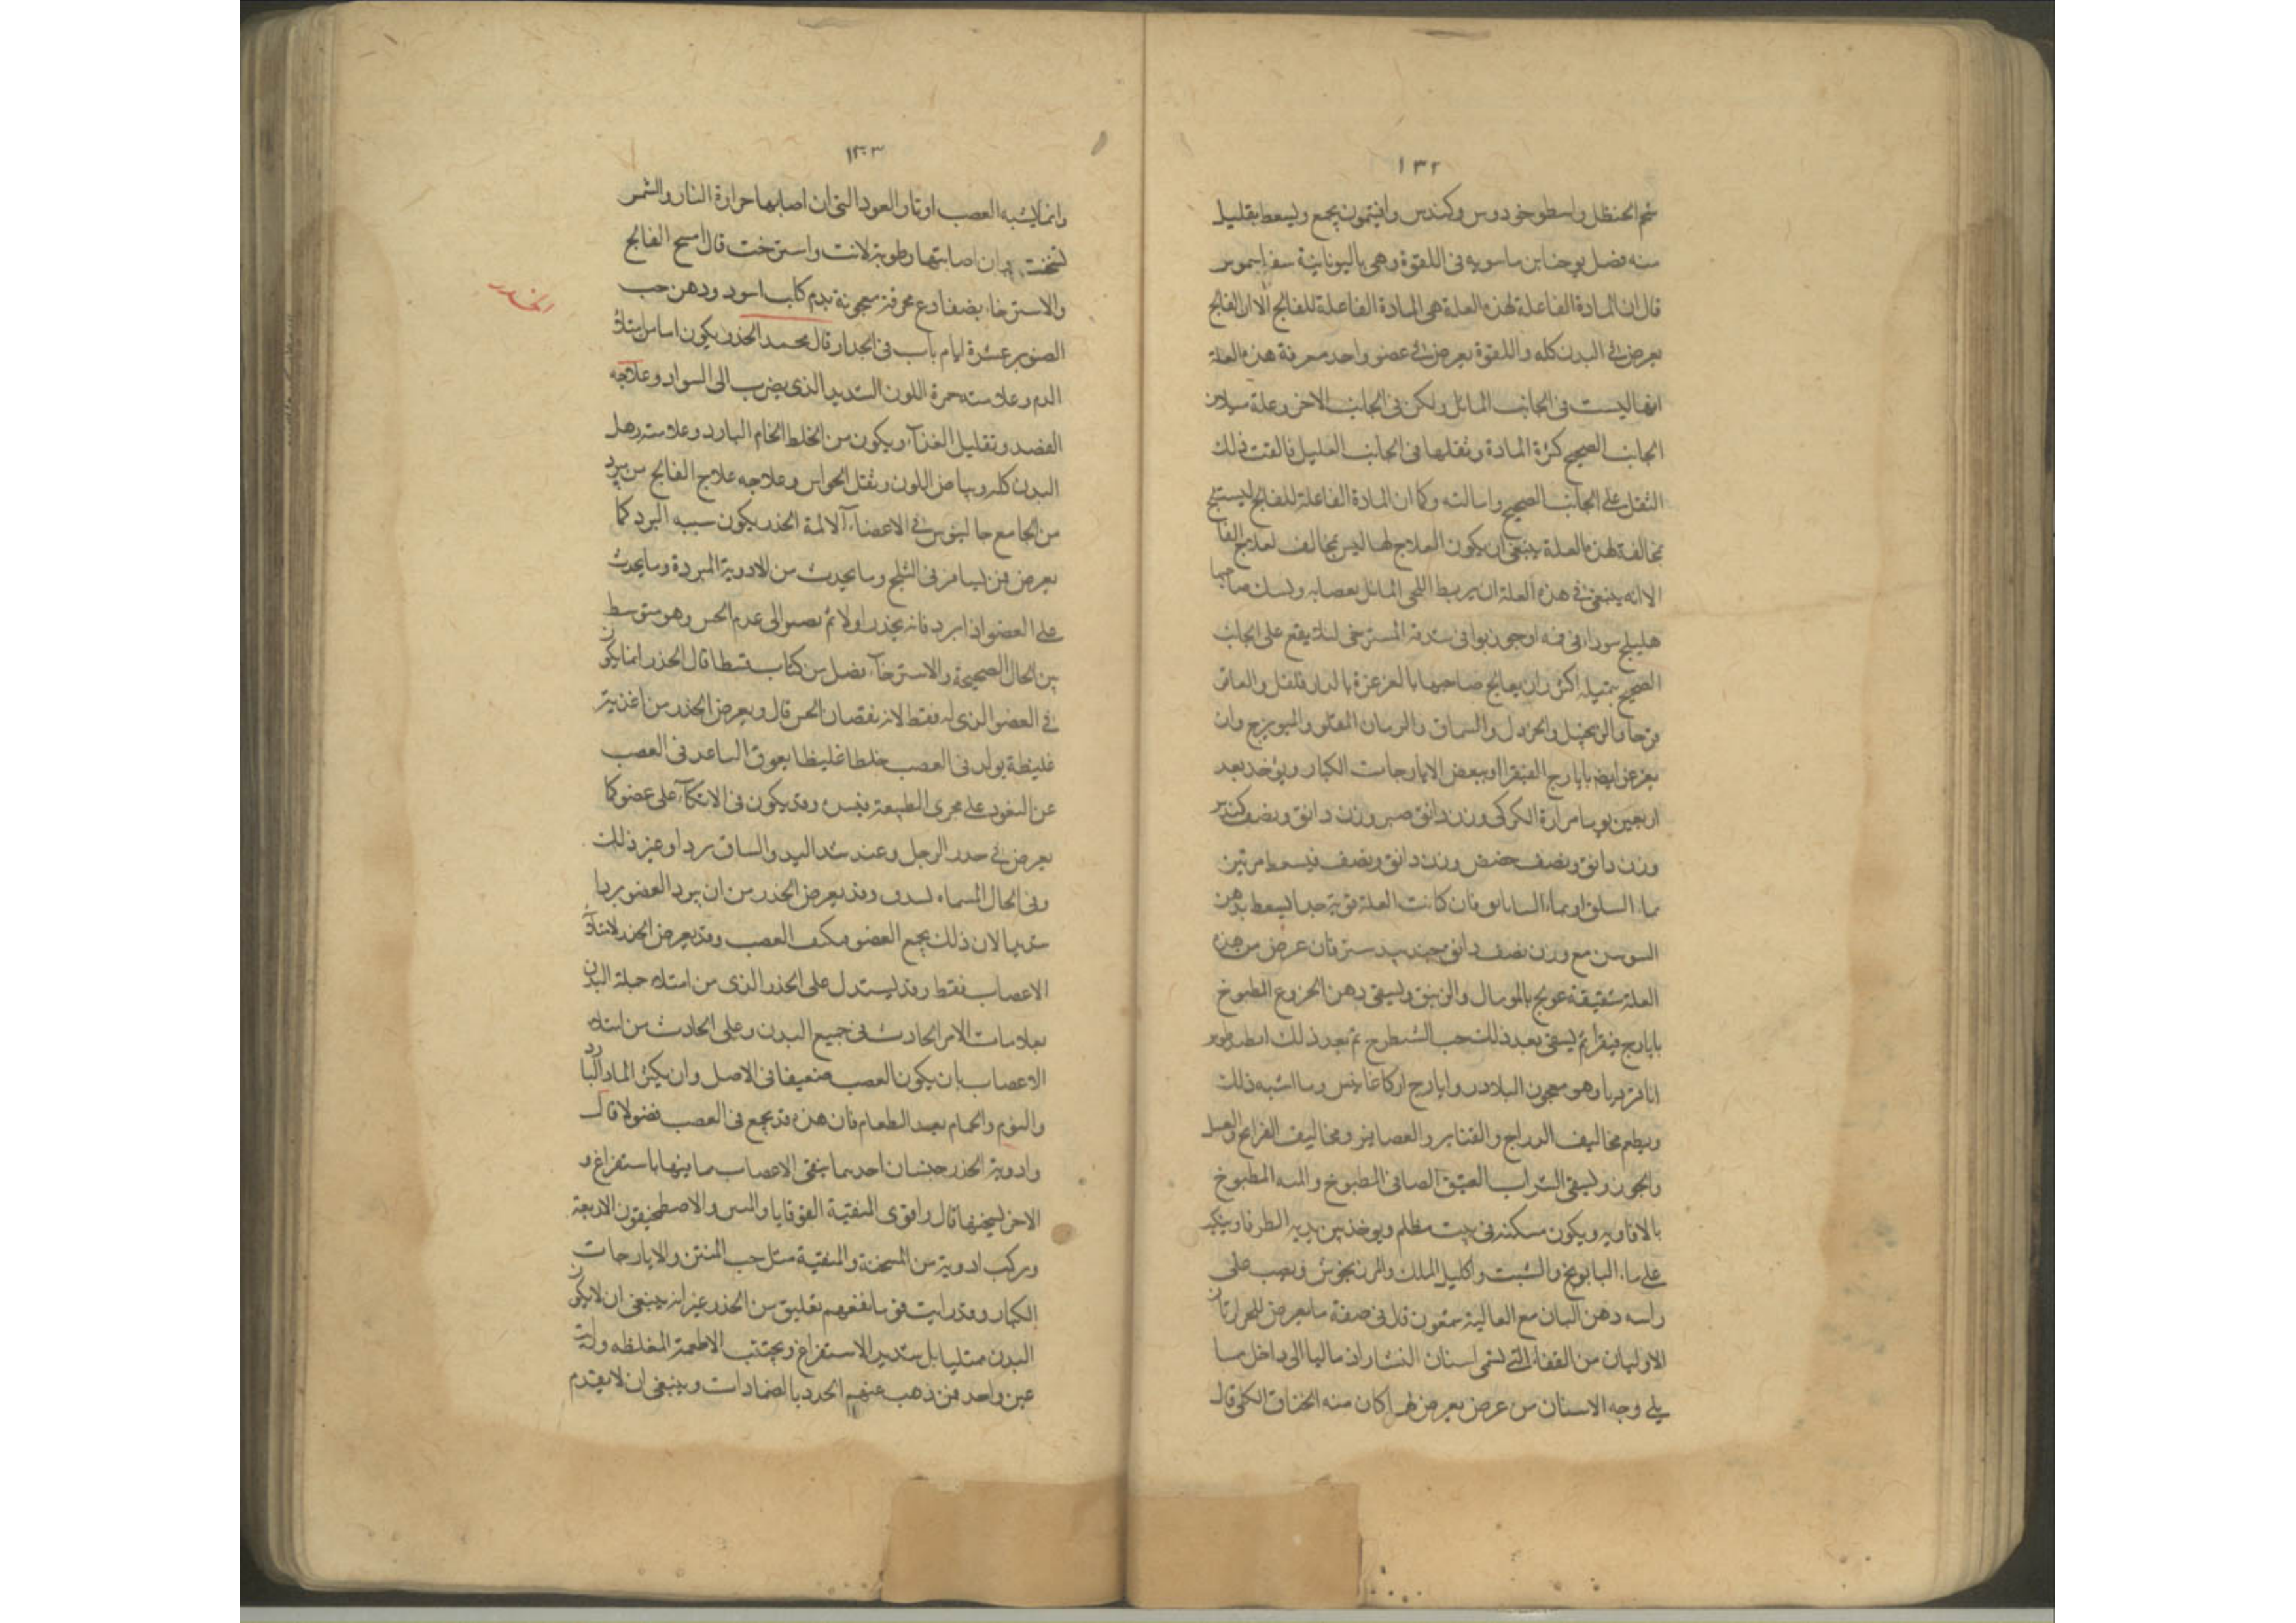 ١٣٢
شحم الحنظل واسطوخودوس وكندس وافيتمون يجمع ويسعط بقليل
منه فصل يوحنا بن ماسويه في اللقوة وهي باليونانية
قال ان المادة الفاعلة لهذه العلة هي المادة الفاعلة للفالج الا ان الفالج
يعرض في البدن كله واللقوة يعرض في عضو واحد معرفة هذه العلة
انها ليست في الجانب المائل ولكن في الجانب الاخر وعلة ميلان
الجانب الصحيح كثرة المادة وثقلها في الجانب العليل فالقت ذلك
الثقل على الجانب الصحيح وامالته وكما ان المادة الفاعلة للفالج ليست
مخالفة لهذه العلة ينبغي ان يكون العلاج لها ليس مخالف لعلاج الفا
الا انه ينبغي في هذه العلة ان يربط اللحى المائل بعصابه ويمسك صاحبها
هليلج سوداء في فمه او جوزبوا في شدقه المسترخي لئلا يقع على الجانب
الصحيح بتميله اكثر وان يعالج صاحبها بالغرغرة بالدارفلفل والعاقر
قرحا والزنجبيل والخردل والسماق والرمان المقلو والميويزج وان
يغرغر ايضا بايارج الفيقرا او ببعض الايارجات الكبار ويؤخذ بعد
اربعين يوما مرارة الكركي وزن دانق صبر وزن دانق ونصف كندر
وزن دانق ونصف حضض وزن دانق ونصف فيسعط مرتين
بماء السلق او بماء فان كانت العلة قوية جدا يسعط بدهن
السوسن مع وزن نصف دانق جندبيدستر فان عرض من هذه
العلة شقيقة عولج بالموميا والزنبق ويسقى دهن الخروع المطبوخ
بايارج فيقرا ثم يسقى بعد ذلك حب الشيطرج ثم بعد ذلك
انا قرديا وهو معجون البلادر وايارج اركاغانيس وما اشبه ذلك
ويطعم مخاليف الدراج والقنابر والعصافير ومخاليف الفراخ والعسل
والجوز ويسقى الشراب العتيق الصافي المطبوخ والمبه المطبوخ
بالافاويه ويكون مسكنه في بيت مظلم ويوخذ بين يديه الطرفا وينكب
على ماء البابونج والشبت واكليل الملك والمرزنجوش ويصب على
راسه دهن البان مع الغالية شمعون قال في صفة ما يعرض
الاوليان من القفا التي تسمى اسنان المنشار اذ مالتا الى داخل مما
يلي وجه الاسنان من عرض يعرض لهما كان منه الخناق الكلي قال
١٣٣
وانما يشبه العصب اوتار العود التي ان اصابها حرارة النار والشمس
وان اصابتها رطوبة لانت واسترخت قال امسح الفالج
والاسترخاء بضفادع محرقة معجونة بدم كلب اسود ودهن حب
الخدر
الصنوبر عشرة ايام باب في الخدر قال محمد الخدر يكون اما من امتلاء
الدم وعلامته حمرة اللون الشديد الذي يضرب الى السواد وعلاجه
الفصد وتقليل الغذاء ويكون من الخلط الخام البارد وعلامته رهل
البدن كله وبياض اللون وثقل الحواس وعلاجه علاج الفالج من برد
من الجامع جالينوس في الاعضاء الالمة الخدر يكون سببه البرد كما
يعرض فمن يسافر في الثلج وما يحدث من الادوية المبردة وما يحدث
على العضو اذا برد فانه يخدر اولا ثم يصير الى عدم الحس وهو متوسط
بين الحال الصحيحة والاسترخاء فصل من كتاب قسطا قال الخدر انما يكون
في العضو الذي له فقط لانه نقصان الحس قال ويعرض الخدر من اغذية
غليظة يولد في العصب خلطا غليظا يعوق الساعد في العصب
عن النفوذ على مجرى الطبيعة بنفس وقد يكون في الاتكاء على عضو كما
يعرض في خدر الرجل وعند شد اليد والساق برد او غير ذلك
وفي الحال المسماه وقد يعرض الخدر من ان يبرد العضو بردا
شديدا لان ذلك يجمع العضو ويكثف العصب وقد يعرض الخدر لامتلاء
الاعصاب فقط وقد يستدل على الخدر الذي من امتلاء جملة البدن
بعلامات الامر الحادث في جميع البدن وعلى الحادث من امتلاء
الاعصاب بان يكون العصب ضعيفا في الاصل وان يكثر الماء البارد
والنوم والحمام بعد الطعام فان هذه قد يجمع في العصب فضولا قال
وادوية الخدر جنسان احدهما ينقى الاعصاب مما فيها باستفراغ و
الاخر يسخنها قال واقوى المنقية القوقايا والاصطمخيقون الاربعة
ويركب ادوية من المسخنة والمنقية مثل حب المنتن والايارجات
الكبار وقد رايت قوما نفعهم تعليق من الخدر غير انه ينبغي ان لا يكون
البدن ممتليا بل شديد الاستفراغ ويجتنب الاطعمة المغلظه ورايت
غير واحد ممن ذهب عنهم الخدر بالضمادات وينبغي ان لا يقدم